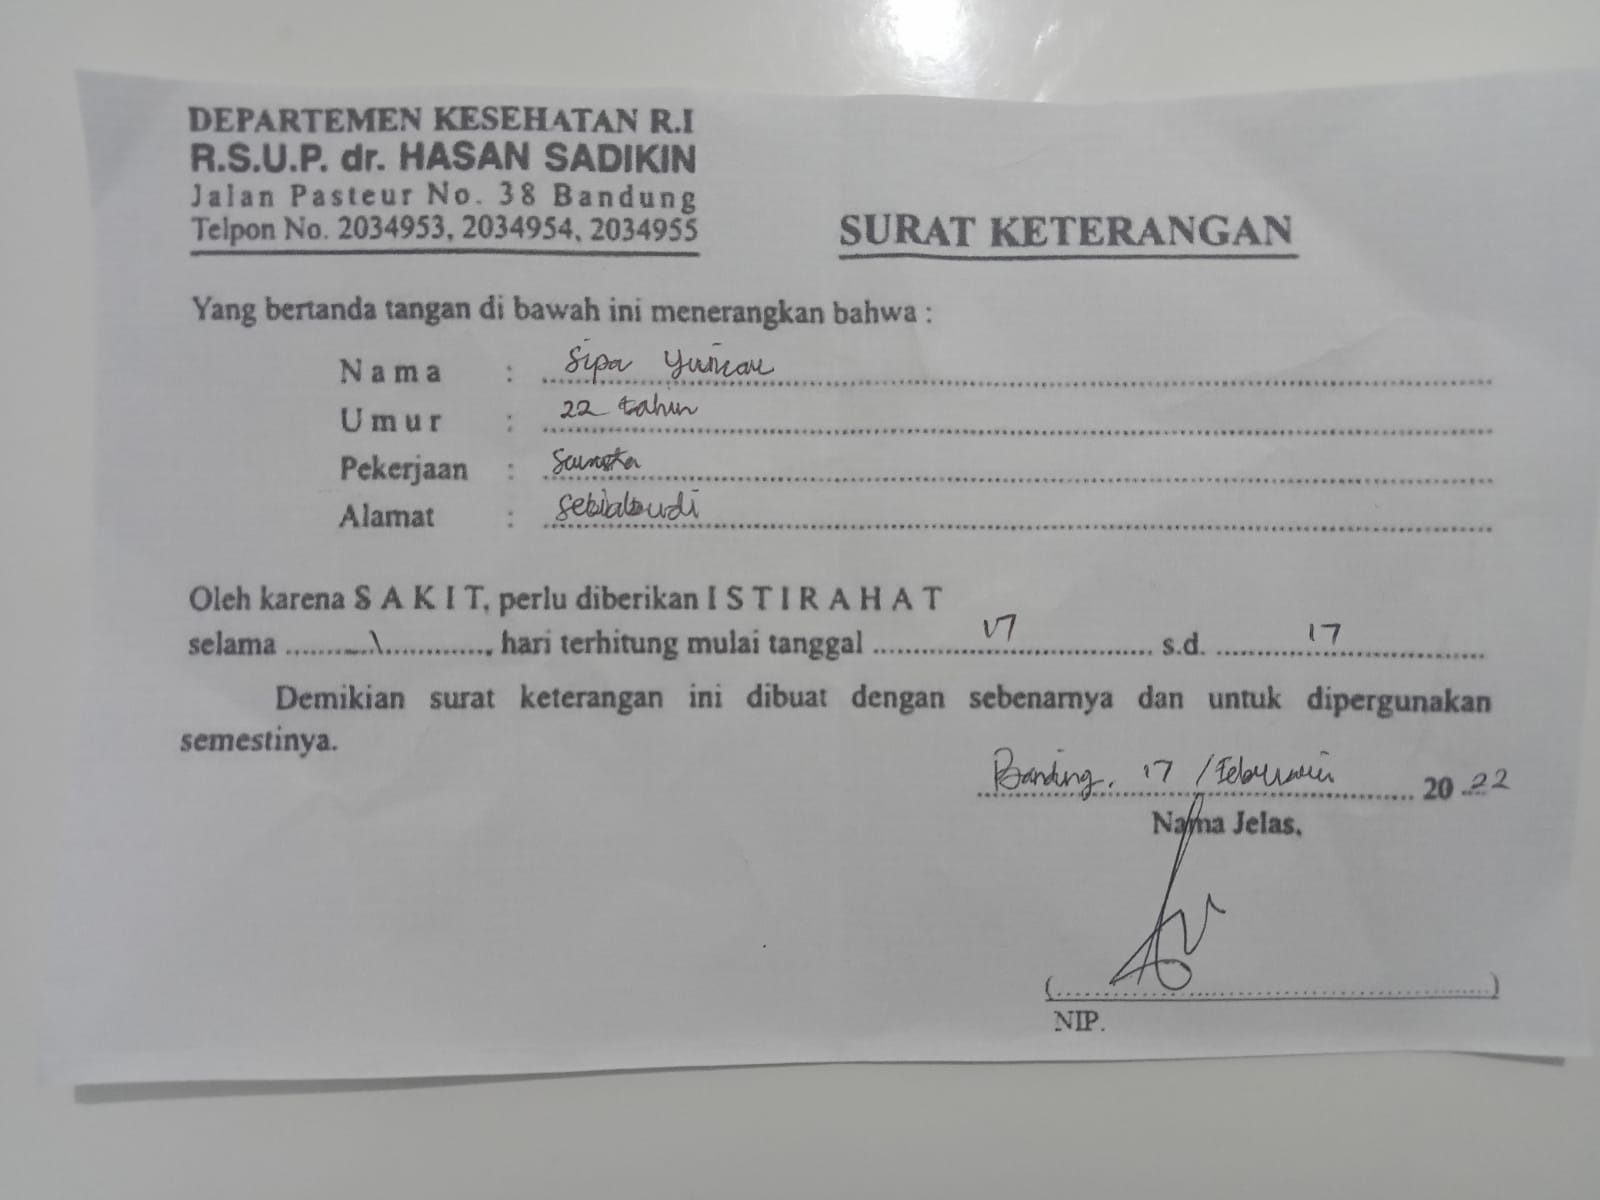 DEPARTEMEN KESEHATAN R.I
R.S.U.P. dr. HASAN SADIKIN
Jalan Pasteur No. 38 Bandung
Telpon No. 2034953, 2034954, 2034955
SURAT KETERANGAN
Yang bertanda tangan di bawah ini menerangkan bahwa :
Nama : Sipa
Umur : 22 tahun
Pekerjaan :
Alamat :
Oleh karena S A K I T, perlu diberikan I S T I R A H A T
selama .......1............, hari terhitung mulai tanggal ........17........ s.d. ........17........
Demikian surat keterangan ini dibuat dengan sebenarnya dan untuk dipergunakan
semestinya.
Bandung, 17 / Februari 2022
Nama Jelas,
(........................................)
NIP.